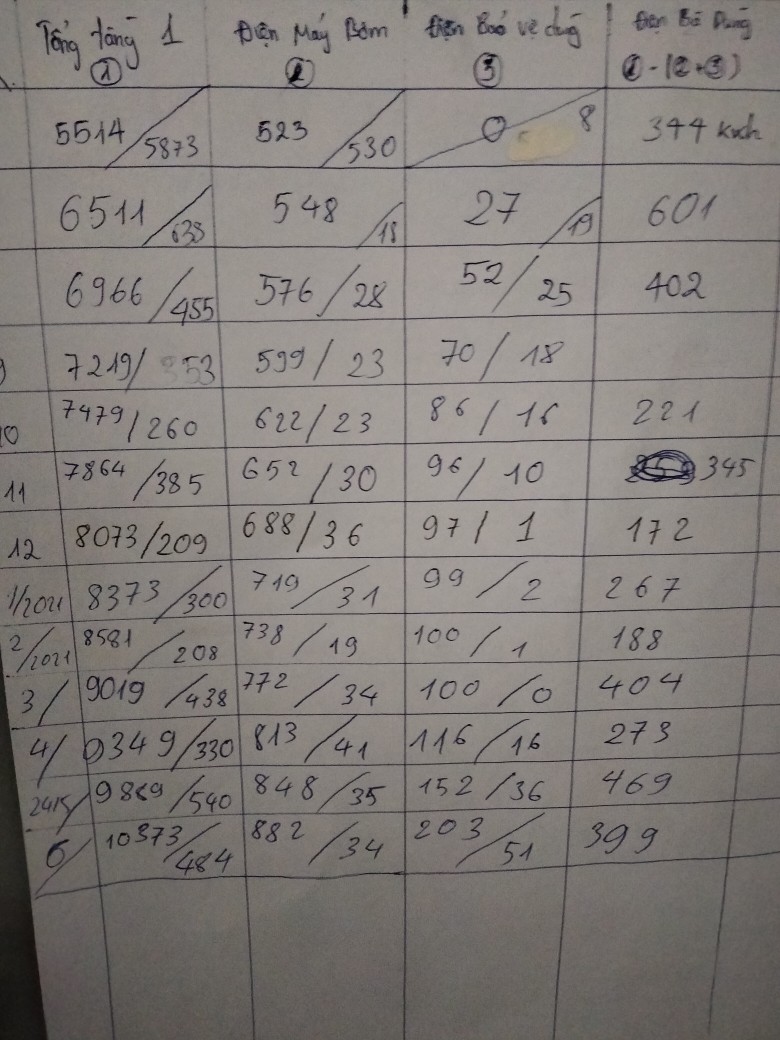 Tổng tầng 1 Điện Máy Bơm Điện Bảo vệ dùng Điện Bà Dung
① ② ③ ① - (2+3)
5514/5873 523/530 0 8 344 kwh
6511/638 548/18 27/19 601
6966/455 576/28 52/25 402
7219/353 599/23 70/18
10 7479/260 622/23 86/16 221
11 7864/385 652/30 96/10 345
12 8073/209 688/36 97/1 172
1/2021 8373/300 719/31 99/2 267
2/2021 8581/208 738/19 100/1 188
3/ 9019/438 772/34 100/0 404
4/ 9349/330 813/41 116/16 273
24/5/ 9869/540 848/35 152/36 469
6/ 10373/484 882/34 203/51 399